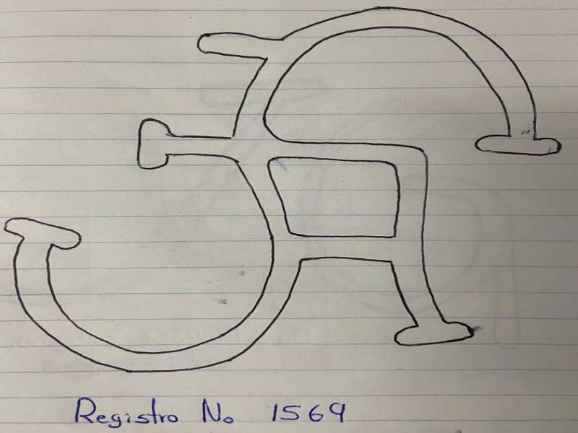 Registro No 1569